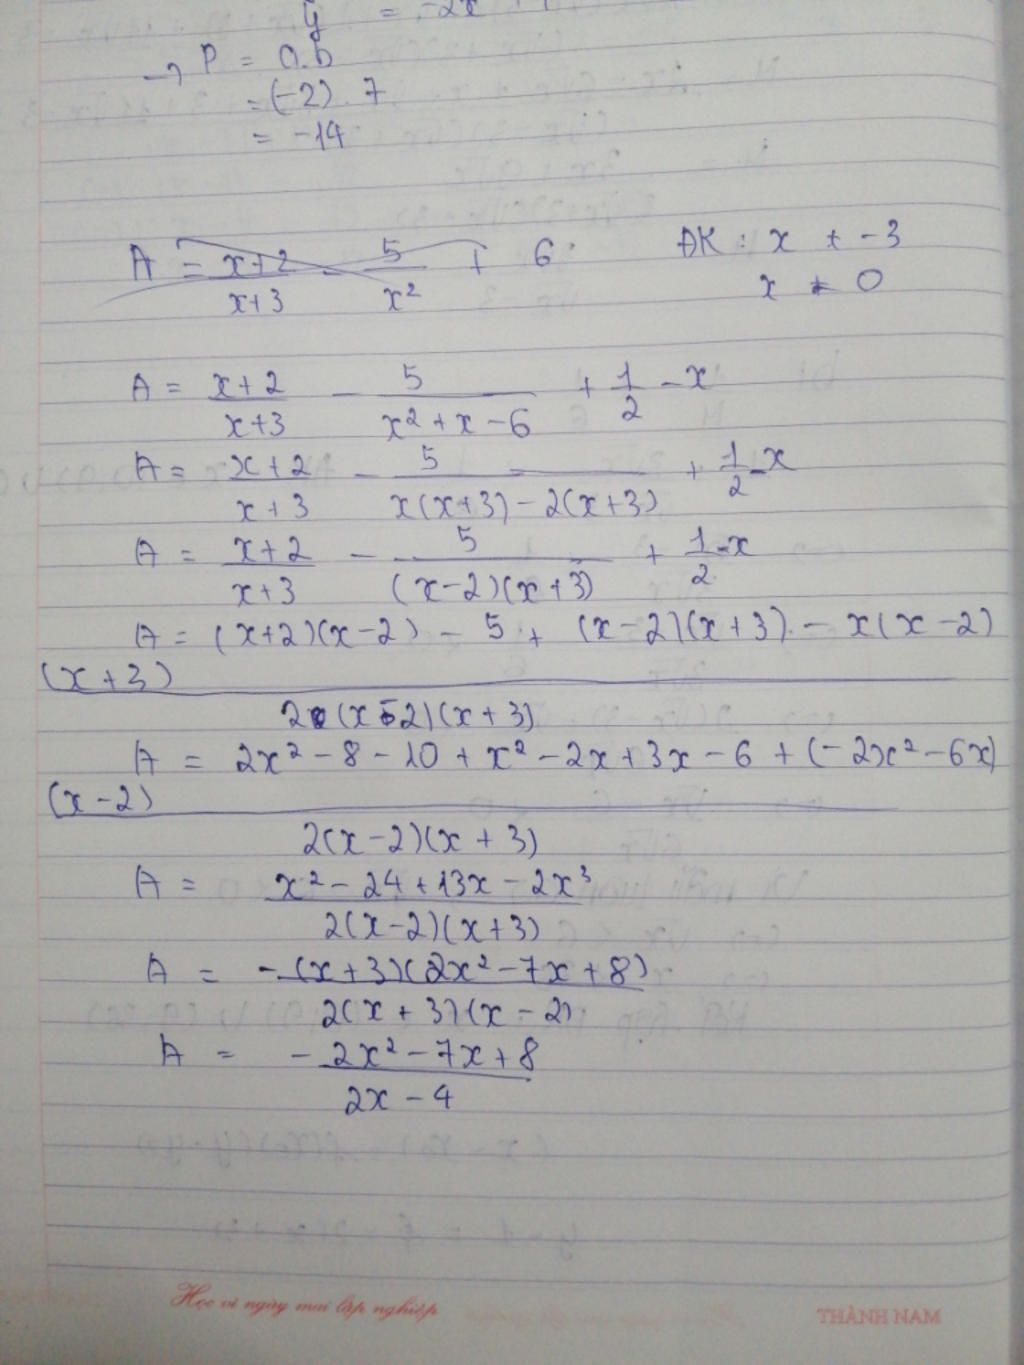 y = -2x
→ P = a.b
= (-2) . 7
= -14
A = x+2/x+3 - 5/x² + 6 ĐK : x ≠ -3
x ≠ 0
A = x+2/x+3 - 5/x²+x-6 + 1/2-x
A = x+2/x+3 - 5/x(x+3)-2(x+3) + 1/2-x
A = x+2/x+3 - 5/(x-2)(x+3) + 1/2-x
A = (x+2)(x-2) - 5 + (x-2)(x+3) - x(x-2)
(x+3)
2(x-2)(x+3)
A = 2x² - 8 - 10 + x² - 2x + 3x - 6 + (-2x² - 6x)
(x-2)
2(x-2)(x+3)
A = x² - 24 + 13x - 2x³
2(x-2)(x+3)
A = -(x+3)(2x² - 7x + 8)
2(x+3)(x-2)
A = - 2x² - 7x + 8
2x - 4
Học vì ngày mai lập nghiệp THÀNH NAM